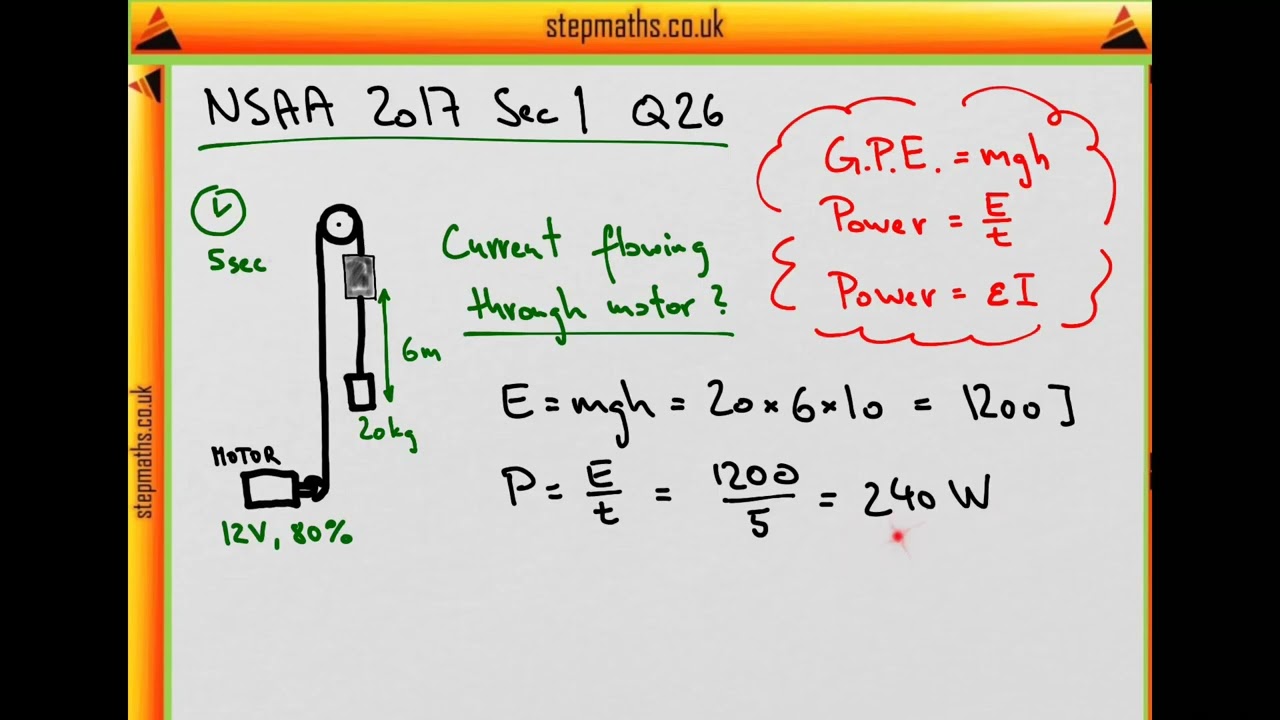 stepmaths.co.uk
NSAA 2017 Sec 1 Q26
G.P.E. = mgh
Power = E/t
Power = εI
5sec
Current flowing
through motor?
6m
20kg
MOTOR
12V, 80%
E = mgh = 20 × 6 × 10 = 1200 J
P = E/t = 1200/5 = 240 W
stepmaths.co.uk